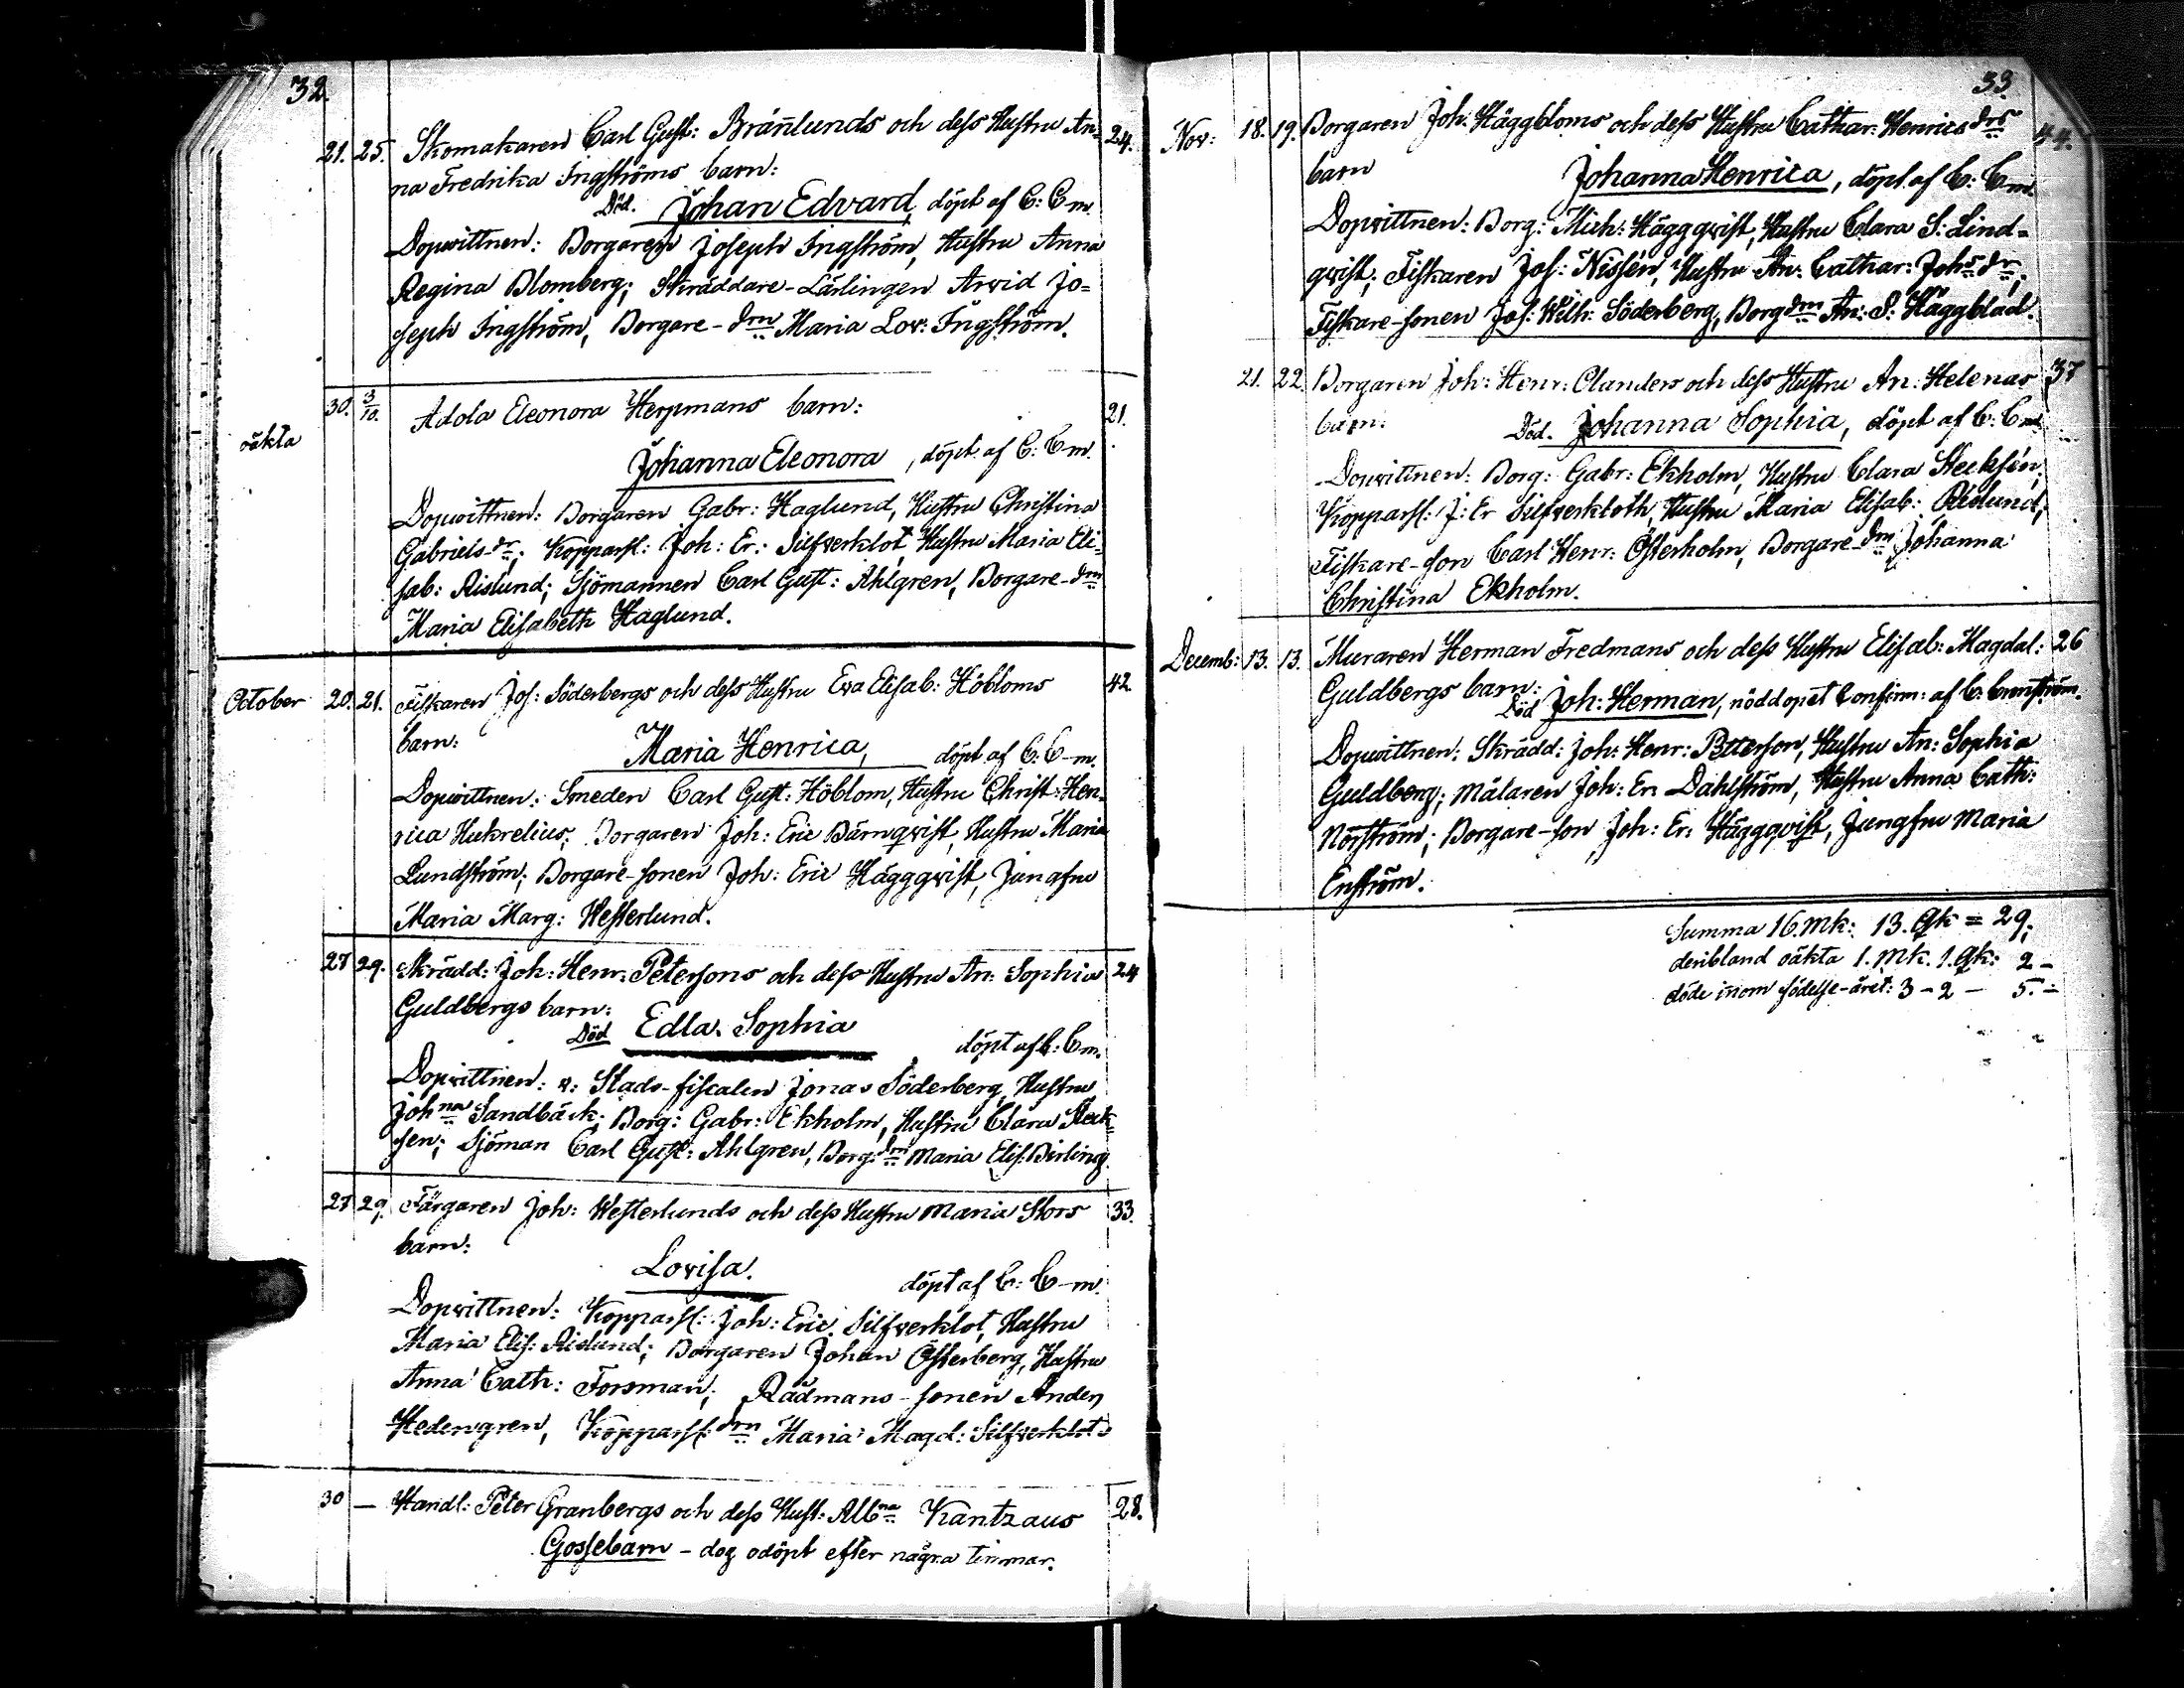 32.
21. 25. Skomakaren Carl Gust: Brän̄lunds och dess Hustru An= 24.
na Fredrika Ingströms barn:
Död. Johan Edvard, döpt af C: C-m.
Dopvittnen: Borgaren Joseph Ingström, Hustru Anna
Regina Blomberg; Skräddare-Lärlingen Arvid Jo=
seph Ingström, Borgare-drn Maria Lov: Ingström.
oäkta 30. 3/10. Adola Eleonora Herpmans barn: 21.
Johanna Eleonora, döpt af C: C-m.
Dopvittnen: Borgaren Gabr: Haglund, Hustru Christina
Gabriels-dr; Kopparsl: Joh: Er: Silfverklot, Hustru Maria Eli=
sab: Rislund; Sjömannen Carl Gust: Ahlgren, Borgare-drn
Maria Elisabeth Haglund.
October 20. 21. Fiskaren Jos: Söderbergs och dess Hustru Eva Elisab: Höbloms 42.
barn:
Maria Henrica, döpt af C: C-m.
Dopvittnen: Smeden Carl Gust: Höblom, Hustru Christ: Hen=
rica; Borgaren Joh: Eric Bärnqvist, Hustru Maria
Lundström; Borgare-sonen Joh: Eric Häggqvist, Jungfru
Maria Marg: Westerlund.
27 29. Skrädd: Joh: Henr: Petersons och dess Hustru An: Sophia 24
Guldbergs barn:
Död Edla Sophia döpt af C: C-m.
Dopvittnen: v: Stads-fiscalen Jonas Söderberg, Hustru
Johna Sandbäck; Borg: Gabr: Ekholm, Hustru Clara Steck=
sen; Sjöman Carl Gust: Ahlgren, Borg: drn Maria Elis: Birling.
27 29. Färgaren Joh: Westerlunds och dess Hustru Maria Stors 33.
barn:
Lovisa. döpt af C: C-m.
Dopvittnen: Kopparsl: Joh: Eric Silfverklot, Hustru
Maria Elis: Rislund; Borgaren Johan Österberg, Hustru
Anna Cath: Forsman; Rådmans-sonen Anders
Hedengren, Kopparsl: drn Maria Magd: Silfverklot.
30 — Handl: Peter Granbergs och dess Hust: Albna Kantzaus 28.
Gossebarn - dog odöpt efter några timmar.
33.
Nov: 18. 19. Borgaren Joh: Häggbloms och dess Hustru Cathar: Henrics drs 44.
barn Johanna Henrica, döpt af C: C-m.
Dopvittnen: Borg: Mich: Häggqvist, Hustru Clara S: Lind=
qvist; Fiskaren Jos: Nissén, Hustru An: Cathar: Johs dr;
Fiskare-sonen Jos: Wilh: Söderberg, Borg drn An: S: Häggblad.
21. 22. Borgaren Joh: Henr: Clanders och dess Hustru An: Helenas 37
barn: Död. Johanna Sophia, döpt af C: C-m
Dopvittnen: Borg: Gabr: Ekholm, Hustru Clara Stecksén;
Kopparsl: J: Er Silfverkloth, Hustru Maria Elisab: Rislund;
Fiskare-son Carl Henr: Österholm, Borgare-drn Johanna
Christina Ekholm.
Decemb: 13. 13. Muraren Herman Fredmans och dess Hustru Elisab: Magdal: 26
Guldbergs barn:
Död Joh: Herman, nöddöpet Confirm: af C:
Dopvittnen: Skrädd: Joh: Henr: Petterson, Hustru An: Sophia
Guldberg; Målaren Joh: Er: Dahlström, Hustru Anna Cath:
Norström; Borgare-son Joh: Er: Häggqvist, Jungfru Maria
Enström.
Summa 16. Mk: 13. Qk = 29;
deribland oäkta 1. Mk. 1. Qk: 2 -
döde inom födelse-året: 3 - 2 - 5. -